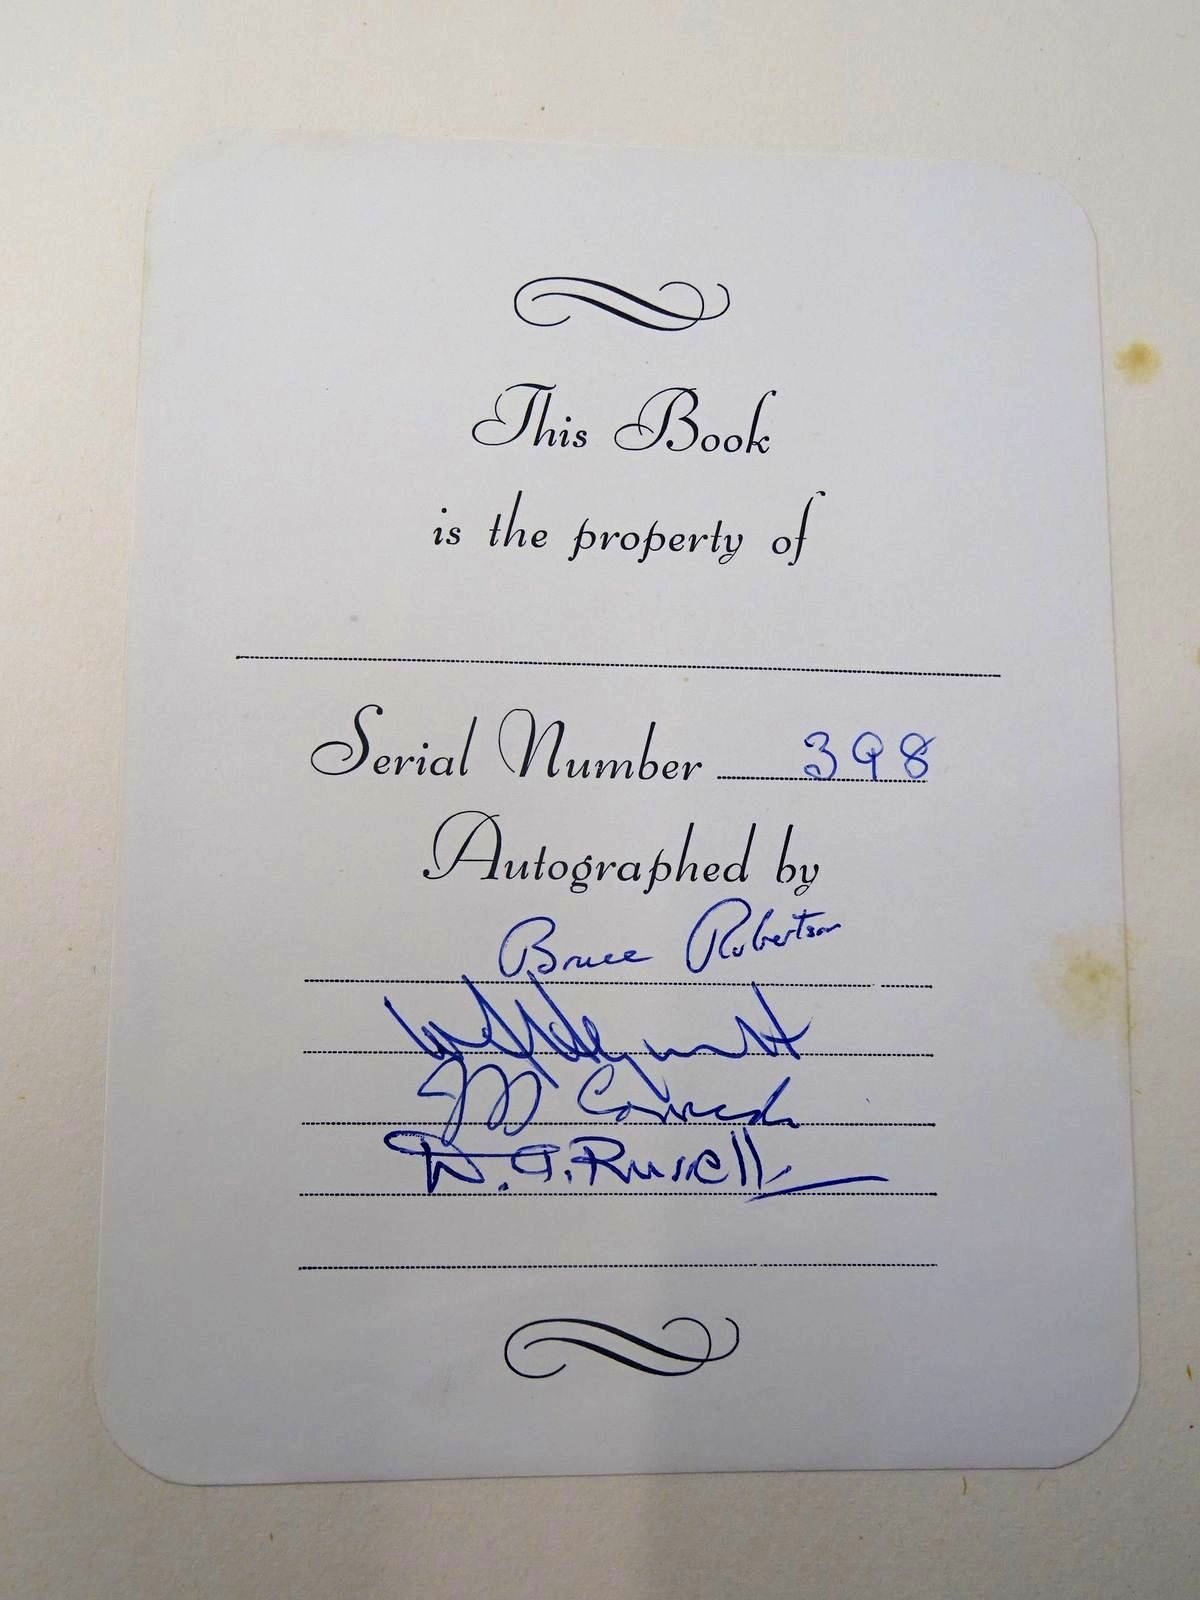 This Book
is the property of
Serial Number 398
Autographed by
Bruce Robertson
D. A. Russell